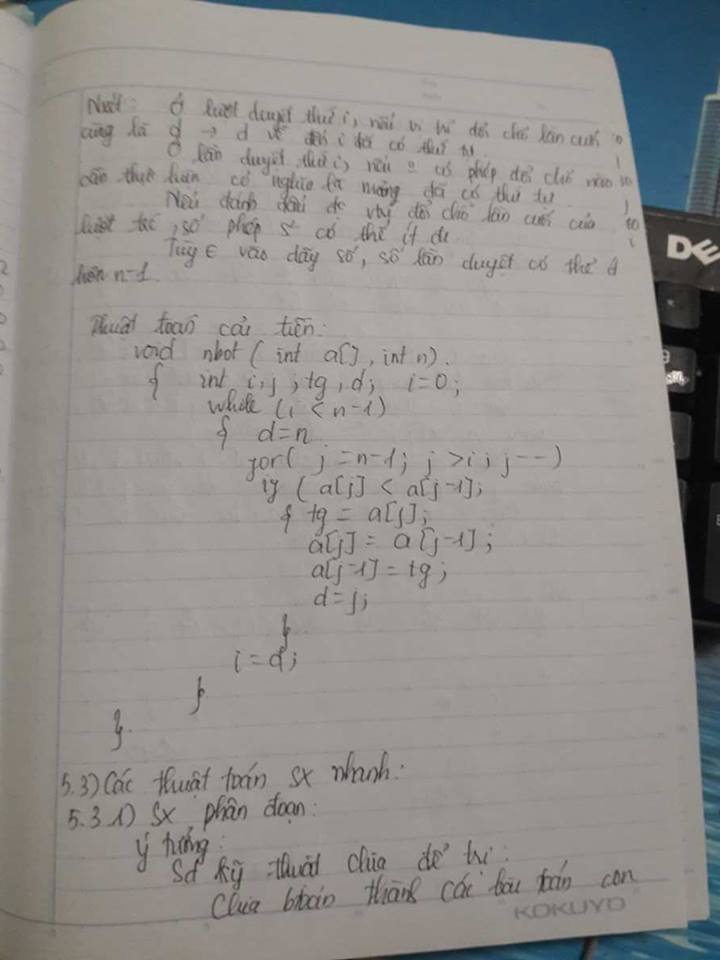 Nxét: Ở lượt duyệt thứ i, nếu vị trí đổi chỗ lần cuối
cùng là d → d về đến i đã có thứ tự
Ở lần duyệt thứ i, nếu có phép đổi chỗ nào
cần thực hiện có nghĩa là mảng đã có thứ tự
Nếu đánh dấu đc vtrí đổi chỗ lần cuối của
lượt trc, số phép s² có thể ít đi
Tùy ∈ vào dãy số, số lần duyệt có thể
hơn n-1.
Thuật toán cải tiến:
void nbot ( int a[], int n).
{ int i, j, tg, d; i=0;
while (i < n-1)
{ d=n
for( j=n-1; j>i; j--)
if ( a[j] < a[j-1];
{ tg = a[j];
a[j] = a[j-1];
a[j-1] = tg;
d=j;
}
i=d;
}
}.
5.3) Các thuật toán sx nhanh:
5.3.1) Sx phân đoạn:
Ý tưởng:
Sd kỹ thuật chia để trị:
Chia btoán thành các bài toán con
KOKUYO
DE